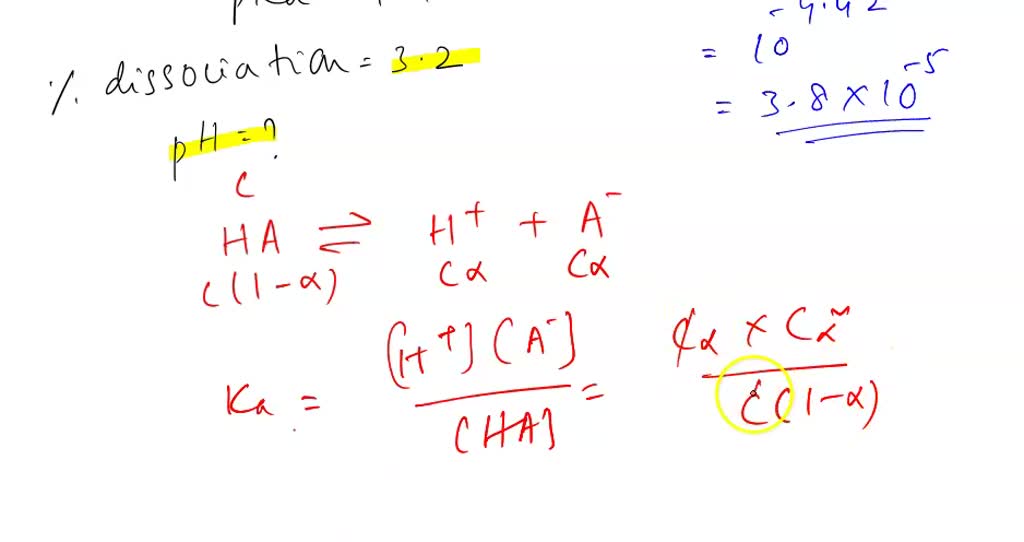 % dissociation = 3.2
= 10^-4.42
= 3.8 × 10^-5
pH = ?
C
HA ⇌ H⁺ + A⁻
C(1-α) Cα Cα
Ka = [H⁺][A⁻] / [HA] = Cα × Cα / C(1-α)